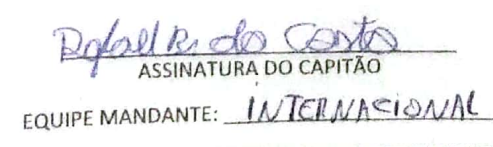 Rafael R. da Costa
ASSINATURA DO CAPITÃO
EQUIPE MANDANTE: INTERNACIONAL